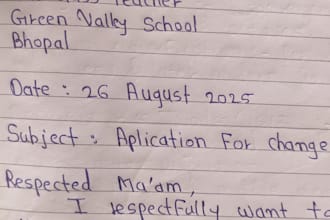 Teacher
Green Valley School
Bhopal
Date : 26 August 2025
Subject : Aplication For change
Respected Ma'am,
I respectfully want to